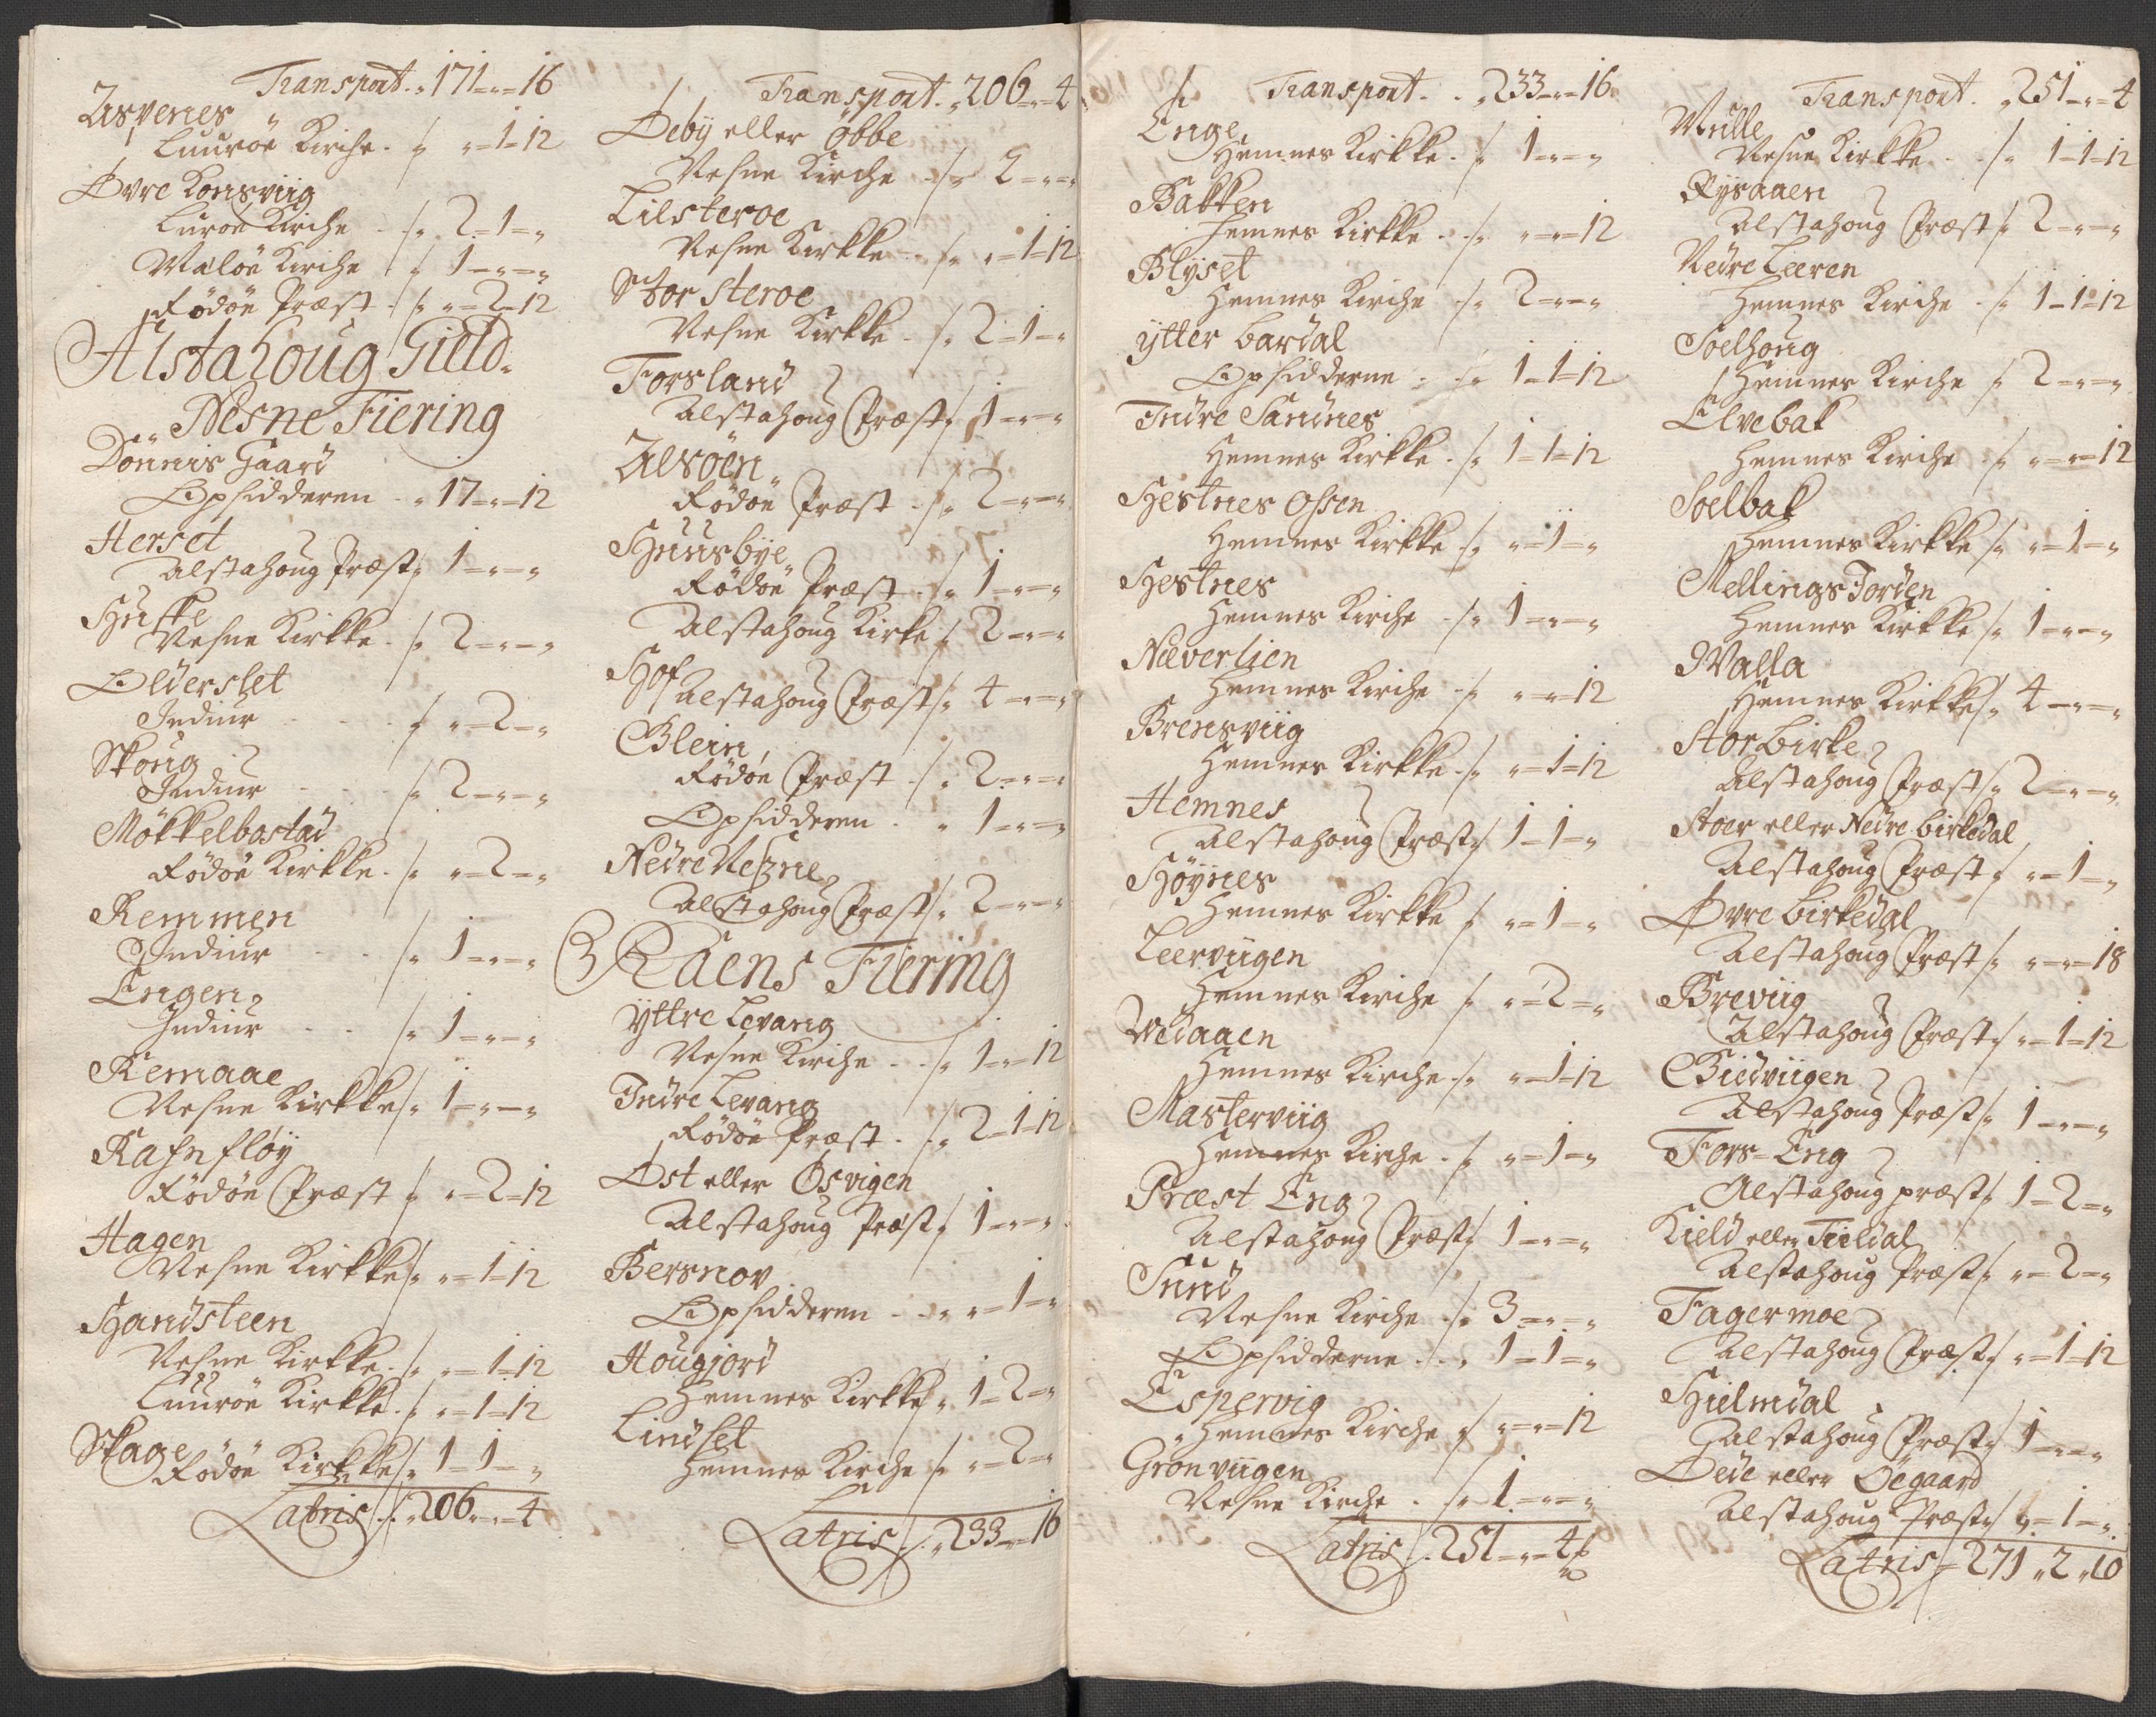 Transport. „ 171 – „ – 16
Zisvenes
Luuröe Kirche. /: „ = 1 = 12
Øvre Konsviig
Luröe Kirche /: 2 = 1 = „
Waløe Kirche /: 1 – „ – „
Rødøe Præst /: „ = 2 = 12
Alstahoug Gield.
Nesne Fiering
Dönnis Gaard
Opsidderen „ 17 – „ – 12
Herset
Alstahoug Præst /: 1 – „ – „
Huske
Nesne Kirkke. /: 2 – „ – „
Olderslet
Indiur /: „ – 2 – „
Skoug
Indiur /: 2 – „ – „
Mökkelbostad
Rødøe Kirkke. /: „ – 2 – „
Remmen
Indiur /: 1 – „ – „
Engen
Indiur /: 1 – „ – „
Remaae
Nesne Kirkke /: 1 – „ – „
Rafnfløy
Rødøe Præst /: „ – 2 – 12
Hagen
Nesne Kirkke /: „ = 1 = 12
Handsteen
Nesne Kirkke. /: „ – 1 – 12
Luurøe Kirkke. /: „ = 1 = 12
Skage
Rødøe Kirkke /: 1 – 1 – „
Latris /: 206 – „ – 4
Transport. „ 206 – „ – 4
Øebÿ eller Öbbe
Nesne Kirche /: 2 – „ – „
Lilsteroe
Nesne Kirkke /: „ – 1 – 12
Stor Steroe
Nesne Kirkke /: 2 – 1 – „
Forsland
Alstahoug Præst /: 1 – „ – „
Zalsöen
Rødøe Præst /: 2 – „ – „
Huusbÿe
Rødøe Præst /: 1 – „ – „
Alstahoug Kirke /: 2 – „ – „
Hof
Alstahoug Præst /: 4 – „ – „
Glein
Rødøe Præst /: 2 – „ – „
Opsidderen „ 1 – „ – „
Nedre Neszne
Alstahoug Præst /: 2 – „ – „
Raens Fiering
Yttre Levang
Nesne Kirche /: 1 – „ – 12
Indre Levang
Rødøe Præst. /: 2 – 1 – 12
Øst eller Øsvigen
Alstahoug Præst /: 1 – „ – „
Bersnov
Opsidderen „ „ – 1 – „
Hougjord
Hemnes Kirkke „ 1 – 2 – „
Lindset
Hemnes Kirche /: „ – 2 – „
Latris /: „ 233 – „ – 16
Transport. „ 233 – „ – 16
Enge
Hemnes Kirkke. /: 1 – „ – „
Bakken
Hemnes Kirkke. /: „ – „ – 12
Blÿset
Hemnes Kirche /: 2 – „ – „
Ytter bardal
Opsidderne /: 1 – 1 – 12
Indre Sandnes
Hemnes Kirkke. /: 1 – 1 – 12
Hestnes Ossen
Hemnes Kirkke /: „ – 1 – „
Hestnes
Hemnes Kirche /: 1 – „ – „
Næverlien
Hemnes Kirche /: „ – „ – 12
Brensviig
Hemnes Kirkke. /: „ – 1 – 12
Hemnes
Alstahoug Præst /: 1 – 1 – „
Høÿnes
Hemnes Kirkke /: „ – 1 – „
Leerviigen
Hemnes Kirche /: „ – 2 – „
Wedaaen
Hemnes Kirche /: „ – 1 – 12
Masterviig
Hemnes Kirche. /: „ – 1 – „
Præst Eng
Alstahoug Præst /: 1 – „ – „
Sund
Nesne Kirche /: 3 – „ – „
Opsidderne „ 1 – 1 – „
Espervig
Hemnes Kirche /: „ – „ – 12
Grønviigen
Nesne Kirche. /: 1 – „ – „
Latris /: 251 – „ – 4
Transport. „ 251 – „ – 4
Wulle
Nesne Kirkke /: 1 – 1 – 12
Rÿsaaen
Alstahoug Præst /: 2 – „ – „
Nedre Leeren
Hemnes Kirche /: 1 – 1 – 12
Soelhoug
Hemnes Kirche /: 2 – „ – „
Elvebak
Hemnes Kirche /: „ – „ – 12
Soelbak
Hemnes Kirkke /: „ – 1 – „
Mellings Jorden
Hemnes Kirkke /: 1 – „ – „
Walla
Hemnes Kirkke /: 4 – „ – „
Storbirke
Alstahoug Præst /: 2 – „ – „
Stoer eller Nedre birkedal
Alstahoug Præst /: „ – 1 – „
Øvre birkedal
Alstahoug Præst /: „ – „ – 18
Breviig
Alstahoug Præst /: „ – 1 – 12
Giedviigen
Alstahoug Præst /: 1 – „ – „
Fors = Eng
Alstahoug præst /: 1 – 2 – „
Kield eller Tieldal
Alstahoug Præst /: „ – 2 – „
Fagermoe
Alstahoug Præst /: „ – 1 – 12
Hielmdal
Alstahoug Præst /: 1 – „ – „
Øede eller Öegaard
Alstahoug Præst /: „ – 1 – „
Latris – 271 „ 2 „ 10